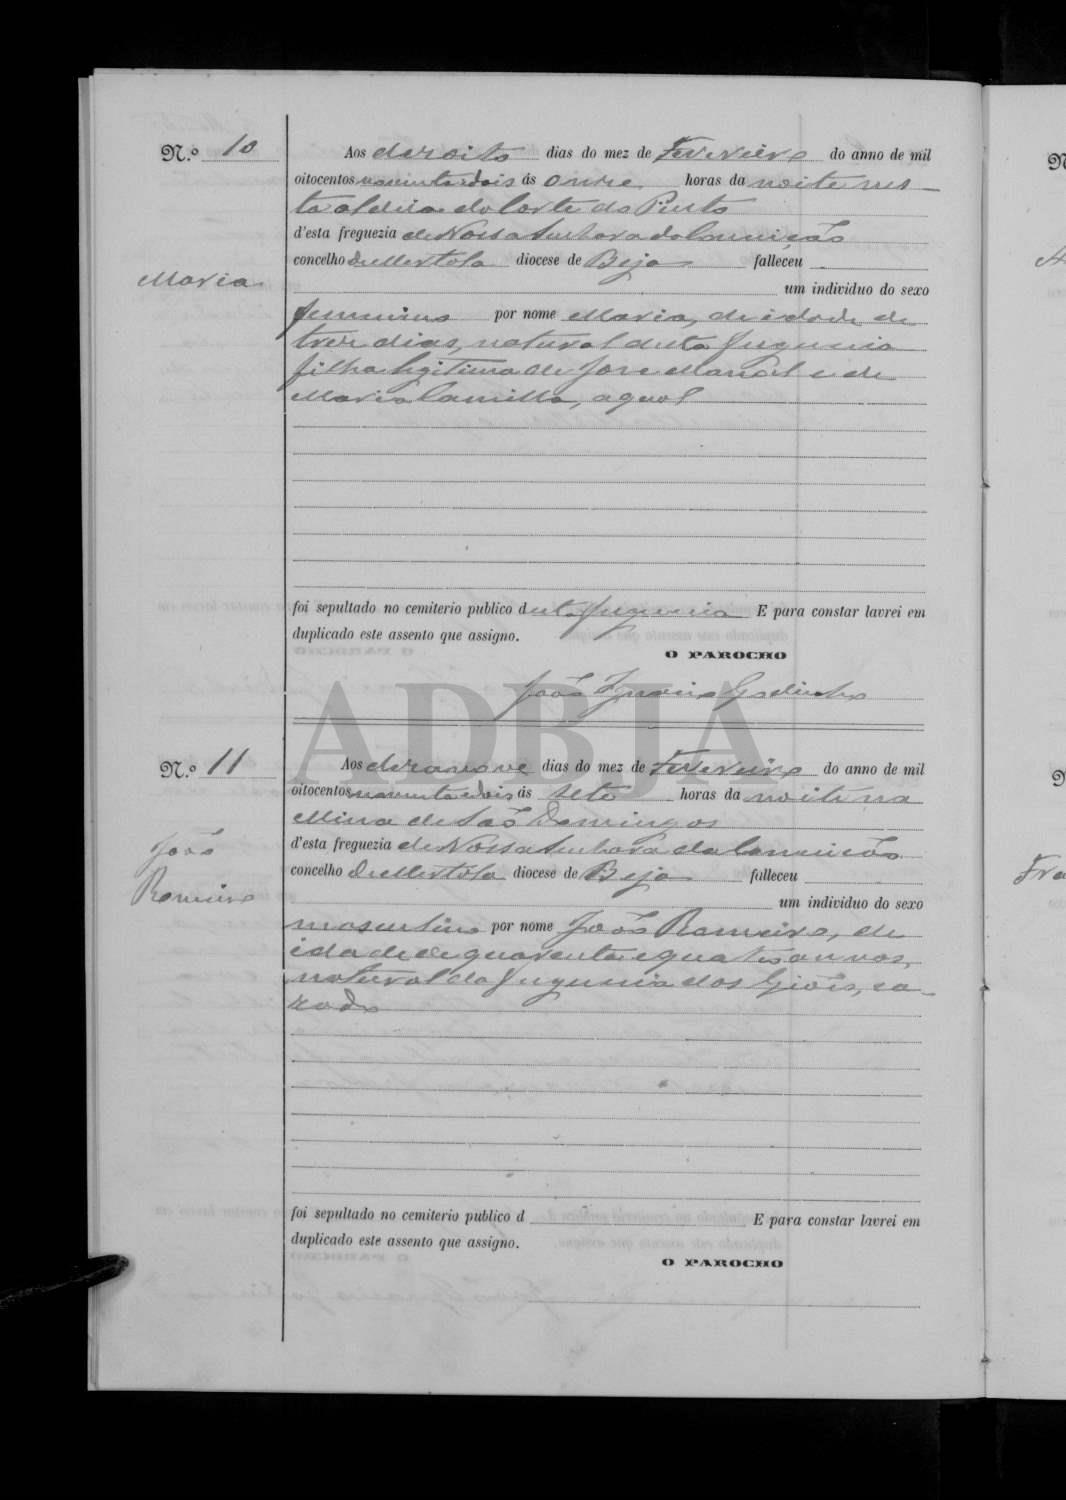 N.º 10
Aos dezoito dias do mez de Fevereiro do anno de mil
oitocentos noventa e dois ás onze horas da noite nes-
ta aldeia da Corte do Pinto
d'esta freguezia de Nossa Senhora da Conceição
concelho de Mertola diocese de Beja falleceu
Maria
um individuo do sexo
femenino por nome Maria, de idade de
trez dias, natural desta freguezia
filha legitima de José Manoel e de
Maria Camilla, aqual
foi sepultado no cemiterio publico desta freguezia E para constar lavrei em
duplicado este assento que assigno.
O PAROCHO
João Ignacio Godinho
ADBJA
N.º 11
Aos dezanove dias do mez de Fevereiro do anno de mil
oitocentos noventa e dois ás sete horas da noite na
Mina de São Domingos
d'esta freguezia de Nossa Senhora da Conceição
João
concelho de Mertola diocese de Beja falleceu
Romeiro
um individuo do sexo
masculino por nome João Romeiro, de
idade de quarenta e quatro annos,
natural da freguezia dos Giões, ca-
zado
foi sepultado no cemiterio publico d E para constar lavrei em
duplicado este assento que assigno.
O PAROCHO